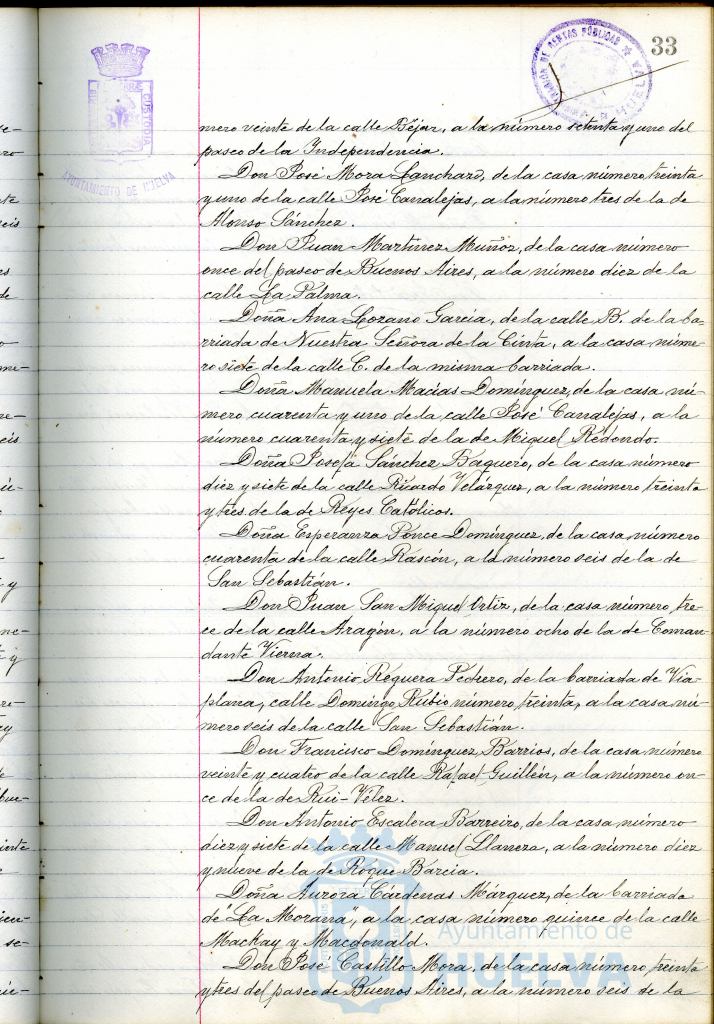 33
AYUNTAMIENTO DE HUELVA
CUSTODIA
mero veinte de la calle Béjar, a la número setenta y uno del
paseo de la Independencia.
Don José Mora Lanchazo, de la casa número treinta
y uno de la calle José Canalejas, a la número tres de la de
Alonso Sánchez.
Don Juan Martínez Muñoz, de la casa número
once del paseo de Buenos Aires, a la número diez de la
calle La Palma.
Doña Ana Lozano García, de la calle B. de la ba-
rriada de Nuestra Señora de la Cinta, a la casa núme-
ro siete de la calle C. de la misma barriada.
Doña Manuela Macías Domínguez, de la casa nú-
mero cuarenta y uno de la calle José Canalejas, a la
número cuarenta y siete de la de Miguel Redondo.
Doña Josefa Sánchez Baquero, de la casa número
diez y siete de la calle Ricardo Velázquez, a la número treinta
y tres de la de Reyes Católicos.
Doña Esperanza Ponce Domínguez, de la casa número
cuarenta de la calle Rascón, a la número seis de la de
San Sebastián.
Don Juan San Miguel Ortiz, de la casa número, tre-
ce de la calle Aragón, a la número ocho de la de Coman-
dante Vierna.
Don Antonio Reguera Pedrero, de la barriada de Via-
plana, calle Domingo Rubio número, treinta, a la casa nú-
mero seis de la calle San Sebastián.
Don Francisco Domínguez Barrios, de la casa número
veinte y cuatro de la calle Rafael Guillén, a la número on-
ce de la de Rui-Vélez.
Don Antonio Escalera Barreiro, de la casa número
diez y siete de la calle Manuel Llaneza, a la número diez
y nueve de la de Roque Barcia.
Doña Aurora Cárdenas Márquez, de la barriada
de "La Morana", a la casa número quince de la calle
Mackay y Macdonald.
Don José Castillo Mora, de la casa número, treinta
y tres del paseo de Buenos Aires, a la número seis de la
Ayuntamiento de
HUELVA